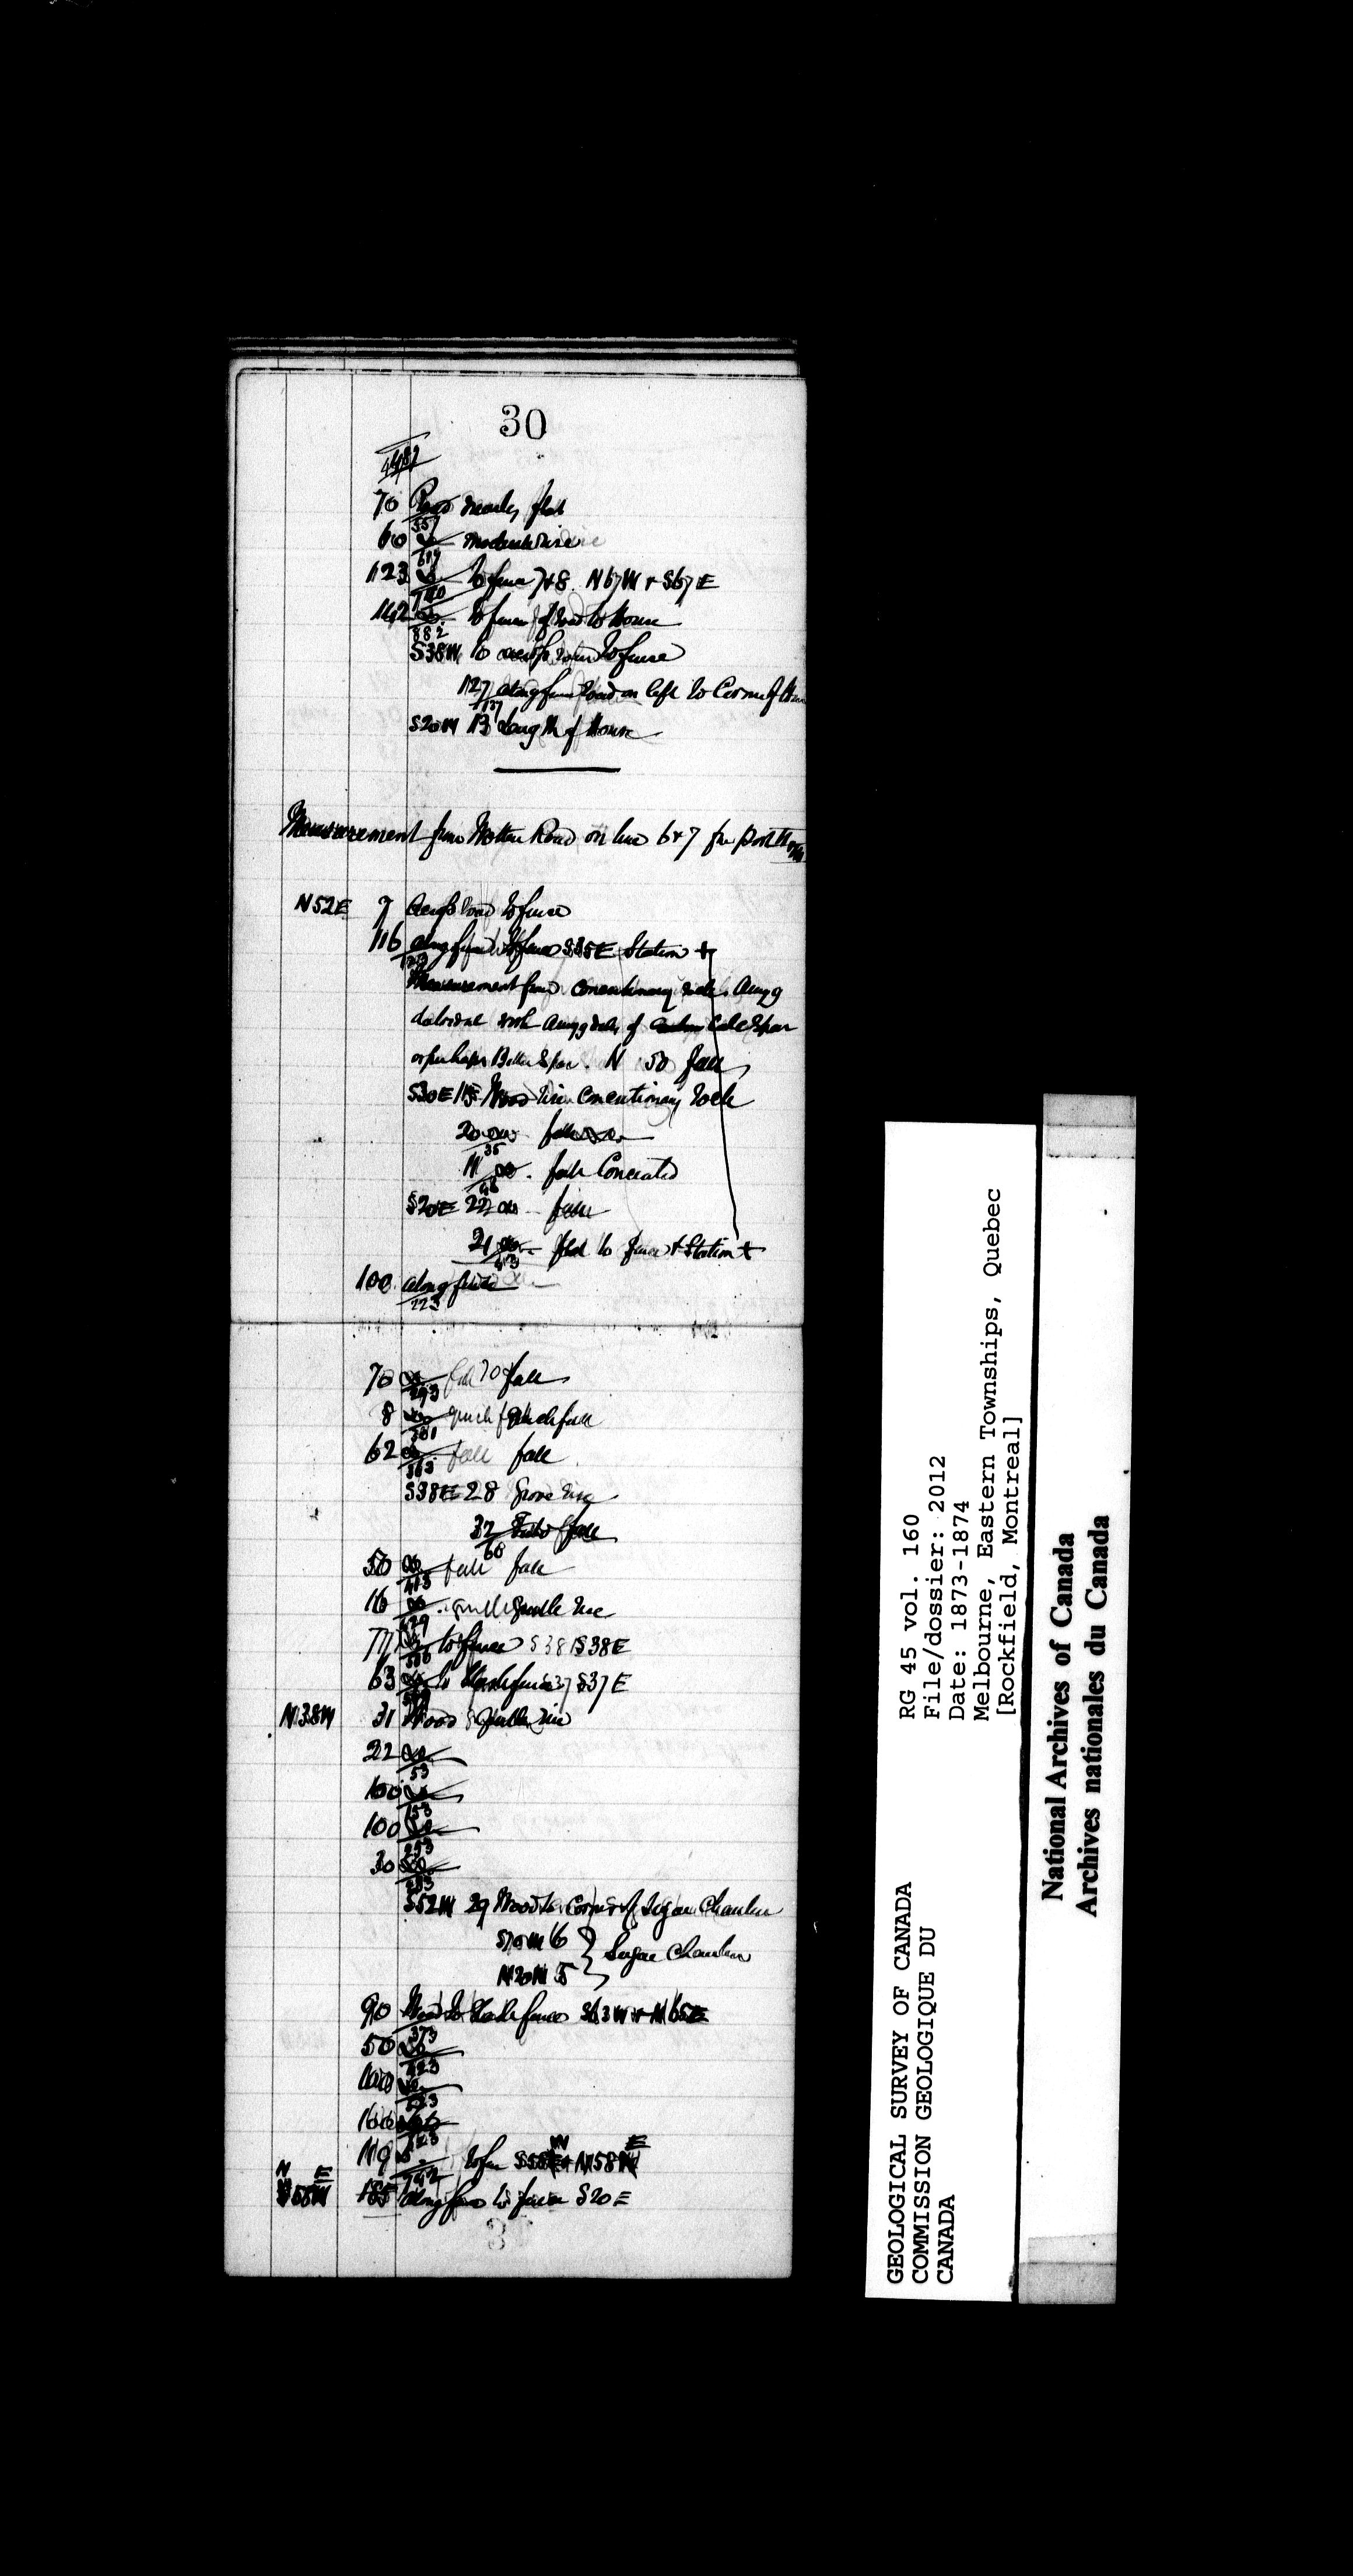 30
487
70 Road nearly flat
557
60 do moderate rise
617
123 do to fence 7+8. N67W + S67E
740
142 do. to fence of road to House
882
S38W 10 across road to fence
127 along fence road on left to Corner of
137
S20W 13 Length of House
Measurement from Road on line 6+7 for
N52E 7 across road to fence
116 along fence to fence S35E Station +
123
Measurement from concretionary rocks Amyg
daloidal with amygdules of Calc Spar
or perhaps Bitter Spar. N 50 fall
S30E 15 Wood rise Concretionary rock
20 do. fall do.
35
11 do. fall Concreted
46
S20E 22 do fall
21 do. flat to fence + Station +
43
100 along fence
223
70 do fall
293
8 do quick fall
301
62 do fall
363
S38E 28 Grove rise
32 fall
60
50 do fall
413
16 do gentle rise
429
77 do to fence S38E
506
63 do to fence S37E
569
N38W 31 Wood gentle rise
22 do
53
100 do
153
100 do
253
30 do
283
S52W 29 Wood to Corner of Sugar
S70W 6
N20W 5 } Sugar
90 Wood to fence S63W + N65E
373
50 do
423
100 do
523
100 do
623
119 to fence
742
185 along fence to fence S20E
GEOLOGICAL SURVEY OF CANADA
COMMISSION GEOLOGIQUE DU
CANADA
RG 45 vol. 160
File/dossier: 2012
Date: 1873-1874
Melbourne, Eastern Townships, Quebec
[Rockfield, Montreal]
National Archives of Canada
Archives nationales du Canada